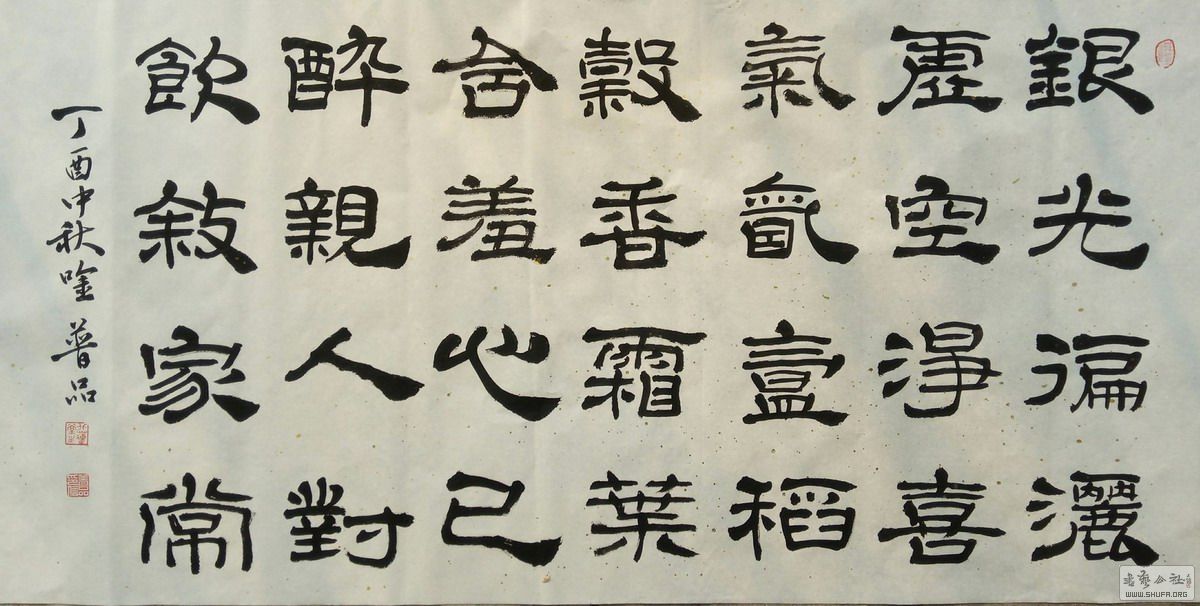 銀光徧灑
虛空淨喜
氣稻
穀香霜葉
含羞心已
醉親人對
飲敘家常
丁酉中秋唫 普品
書藝公社
WWW.SHUFA.ORG